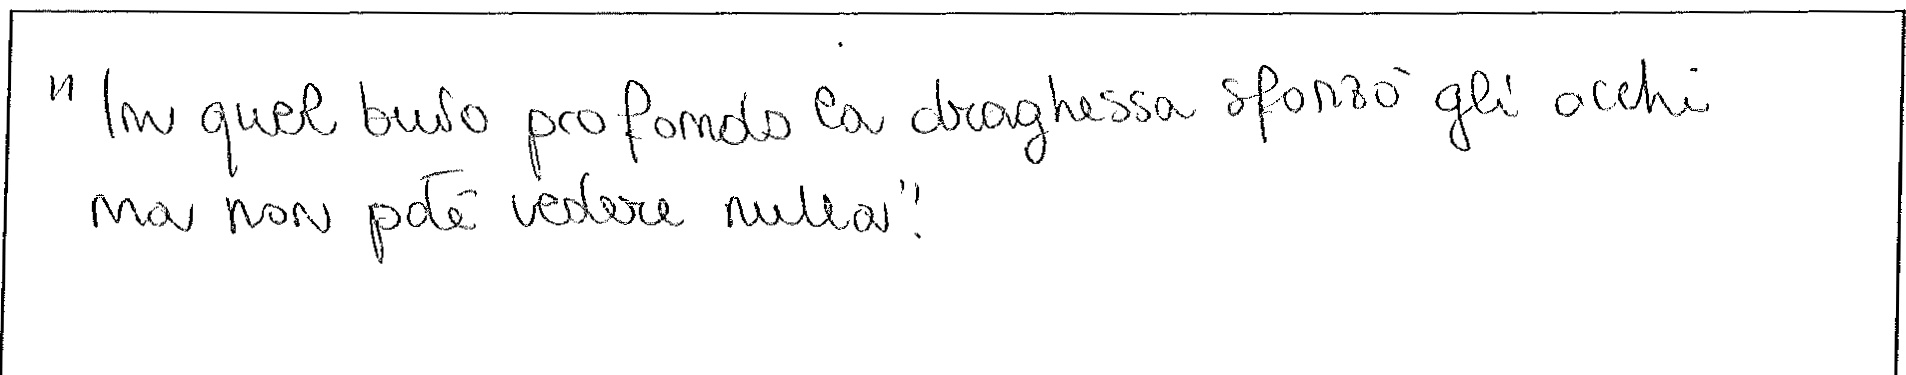 "In quel buio profondo la draghessa sforzò gli occhi
ma non poté vedere nulla".